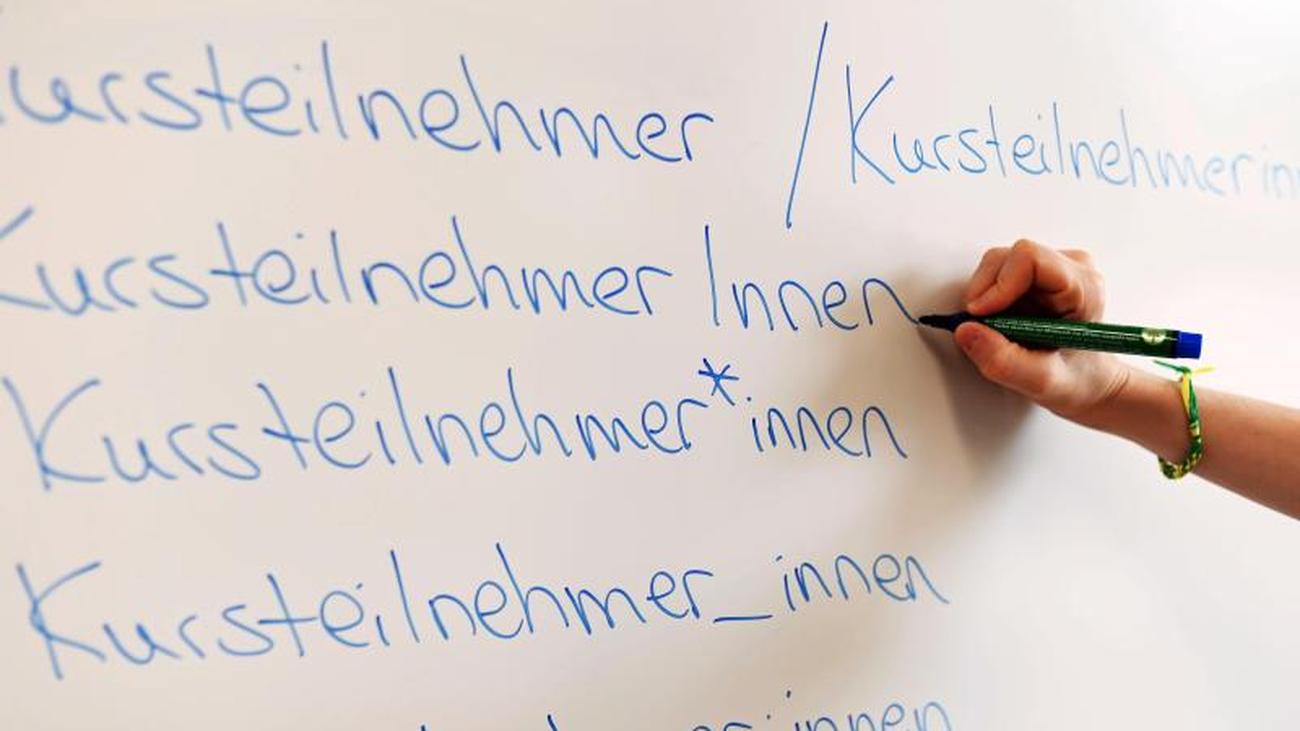 Kursteilnehmer / Kursteilnehmerinn
KursteilnehmerInnen
Kursteilnehmer*innen
Kursteilnehmer_innen